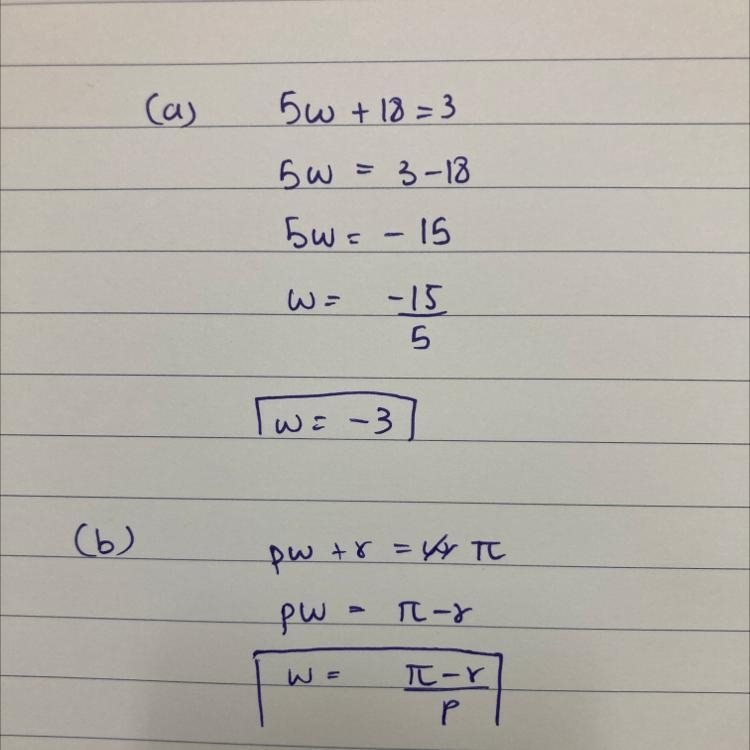 (a) 5w + 18 = 3
5w = 3 - 18
5w = - 15
w = -15/5
w = -3
(b) pw + r = π
pw = π - r
w = π - r/p